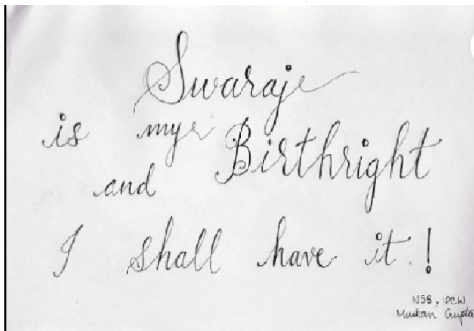 Swaraj
is my Birthright
and
I shall have it !
NSS, IPCW
Muskan Gupta